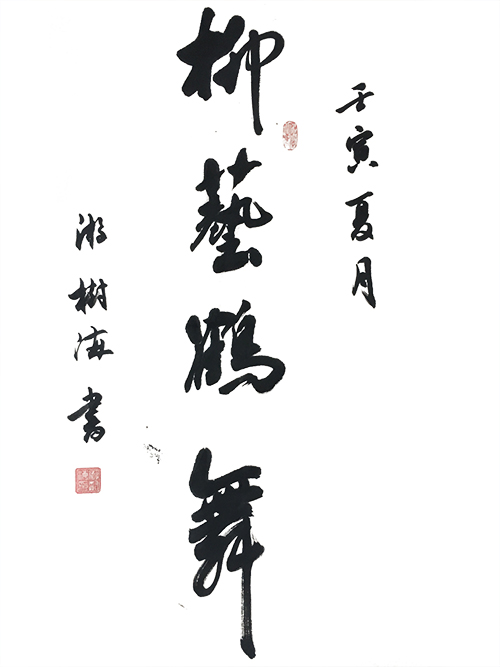 壬寅夏月
柳藝鶴舞
游樹海書